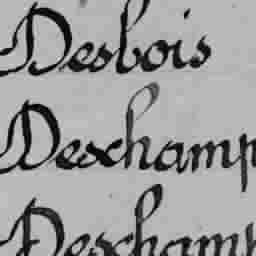 Desbois
Deschamp
Deschamp